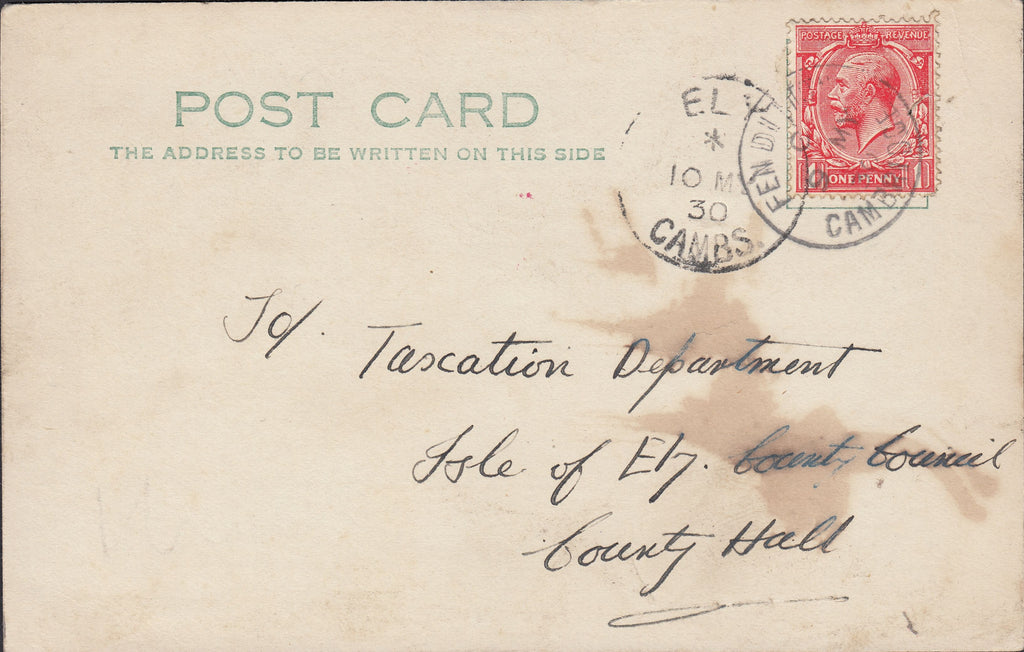 POST CARD
THE ADDRESS TO BE WRITTEN ON THIS SIDE
POSTAGE REVENUE
1 ONE PENNY 1
EL
*
10 MY
30
CAMBS.
FEN
CAMB
To/.
Taxation Department
Isle of Ely. County Council
County Hall